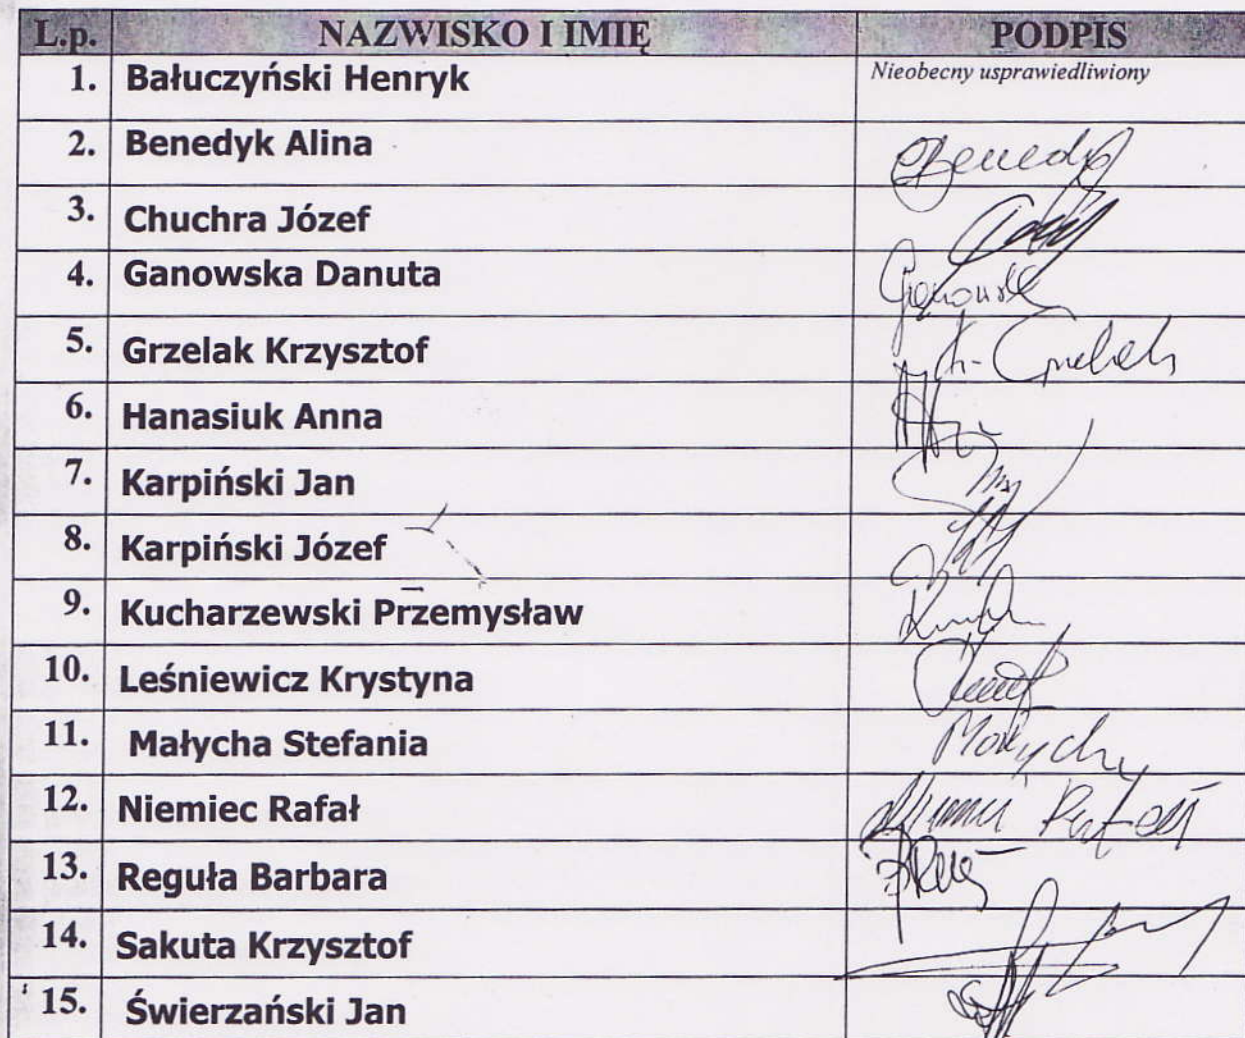 L.p. NAZWISKO I IMIĘ PODPIS
1. Bałuczyński Henryk Nieobecny usprawiedliwiony
2. Benedyk Alina
3. Chuchra Józef
4. Ganowska Danuta
5. Grzelak Krzysztof
6. Hanasiuk Anna
7. Karpiński Jan
8. Karpiński Józef
9. Kucharzewski Przemysław
10. Leśniewicz Krystyna
11. Małycha Stefania
12. Niemiec Rafał
13. Reguła Barbara
14. Sakuta Krzysztof
15. Świerzański Jan